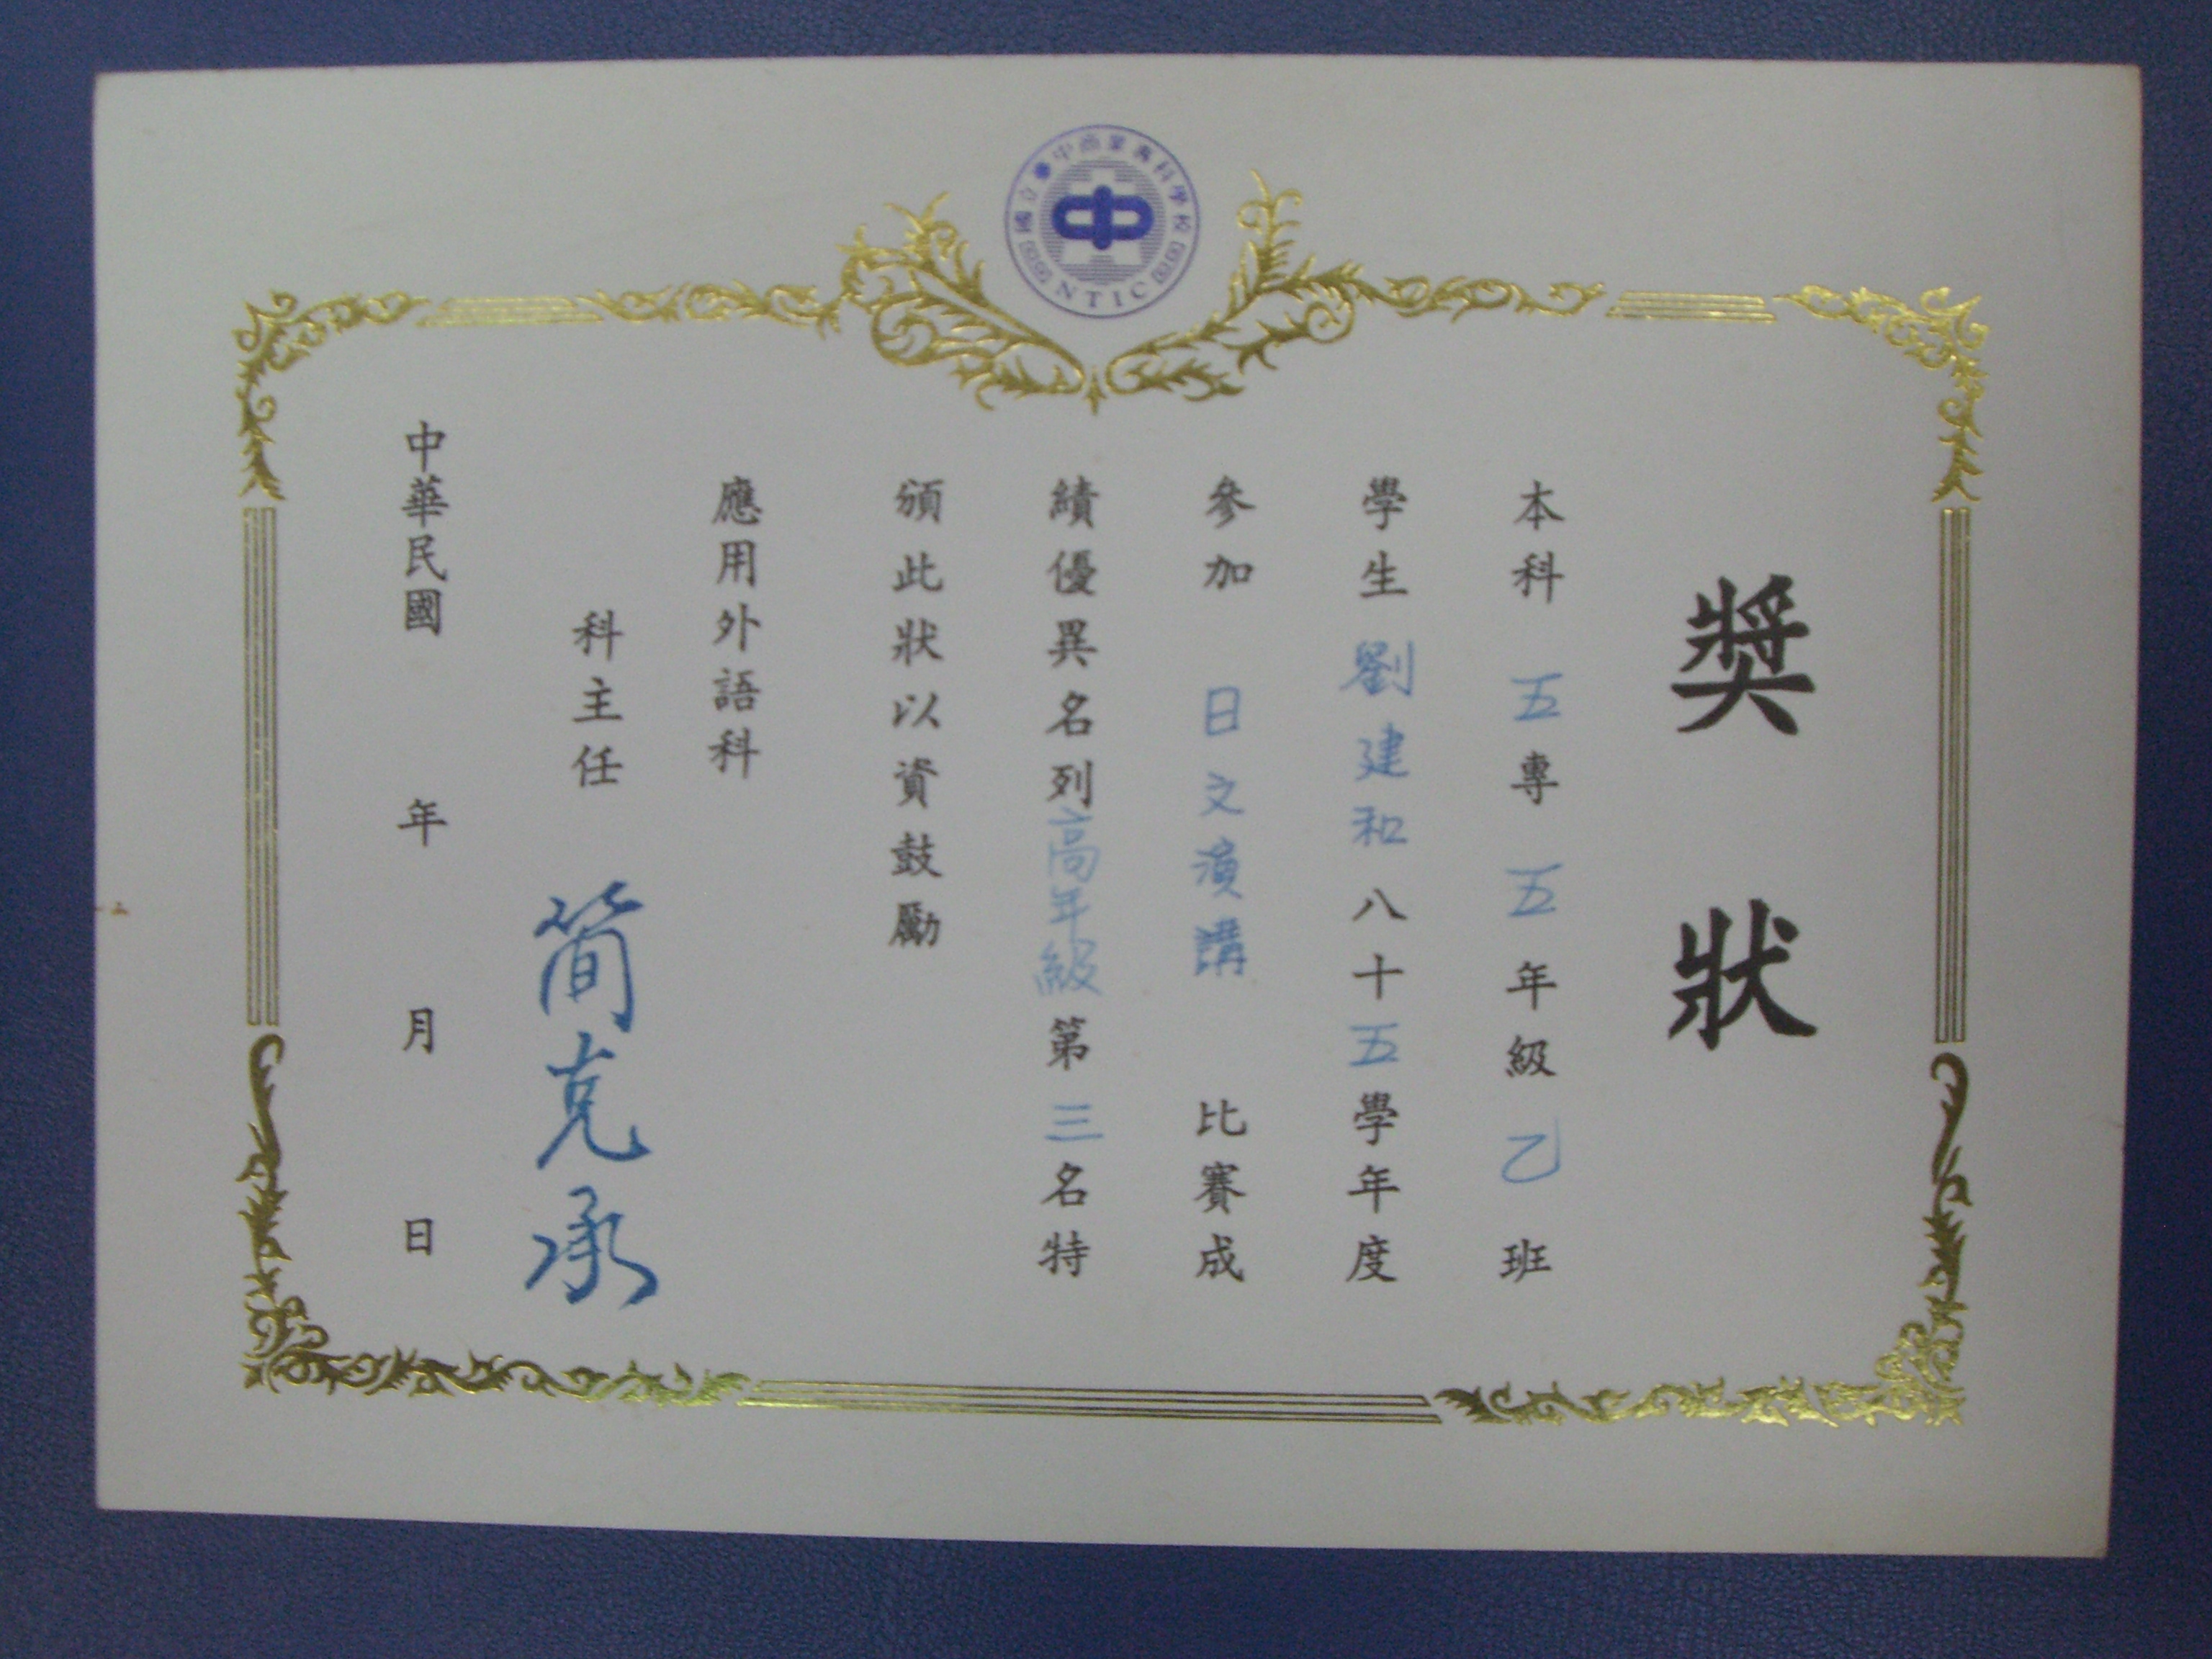 國立臺中商業專科學校
NTIC
獎狀
本科五專五年級乙班
學生劉建和八十五學年度
參加日文演講比賽成
績優異名列高年級第三名特
頒此狀以資鼓勵
應用外語科
科主任簡克承
中華民國年月日